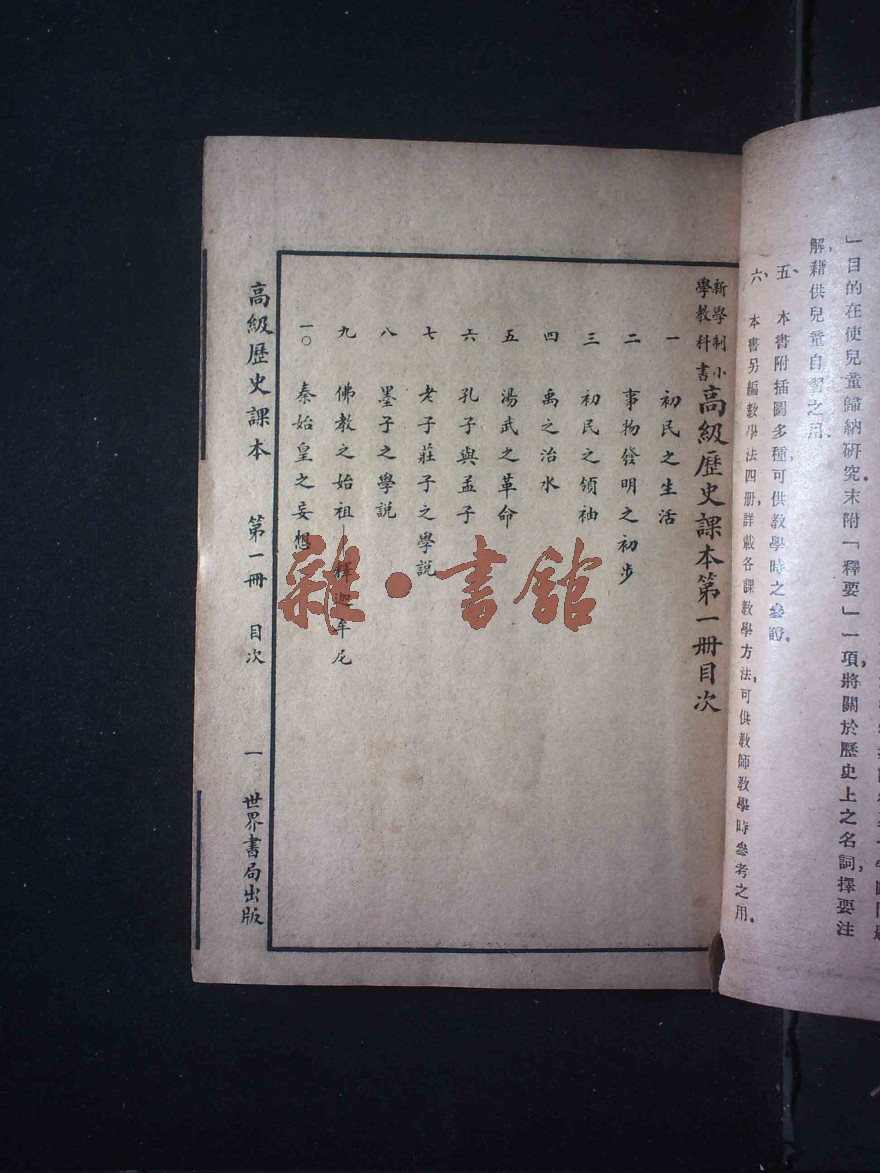 」目的在使兒童歸納研究。末附「釋要」一項，將關於歷史上之名詞，擇要注
解，藉供兒童自習之用。
五、本書附插圖多種，可供教學時之參證。
六、本書另編教學法四册，詳載各課教學方法，可供教師教學時參考之用。
新學制小學教科書
高級歷史課本第一册目次
一 初民之生活
二 事物發明之初步
三 初民之領袖
四 禹之治水
五 湯武之革命
六 孔子與孟子
七 老子莊子之學說
八 墨子之學說
九 佛教之始祖—釋迦牟尼
一〇 秦始皇之妄想
高級歷史課本 第一册 目次 一 世界書局出版
雜·書館